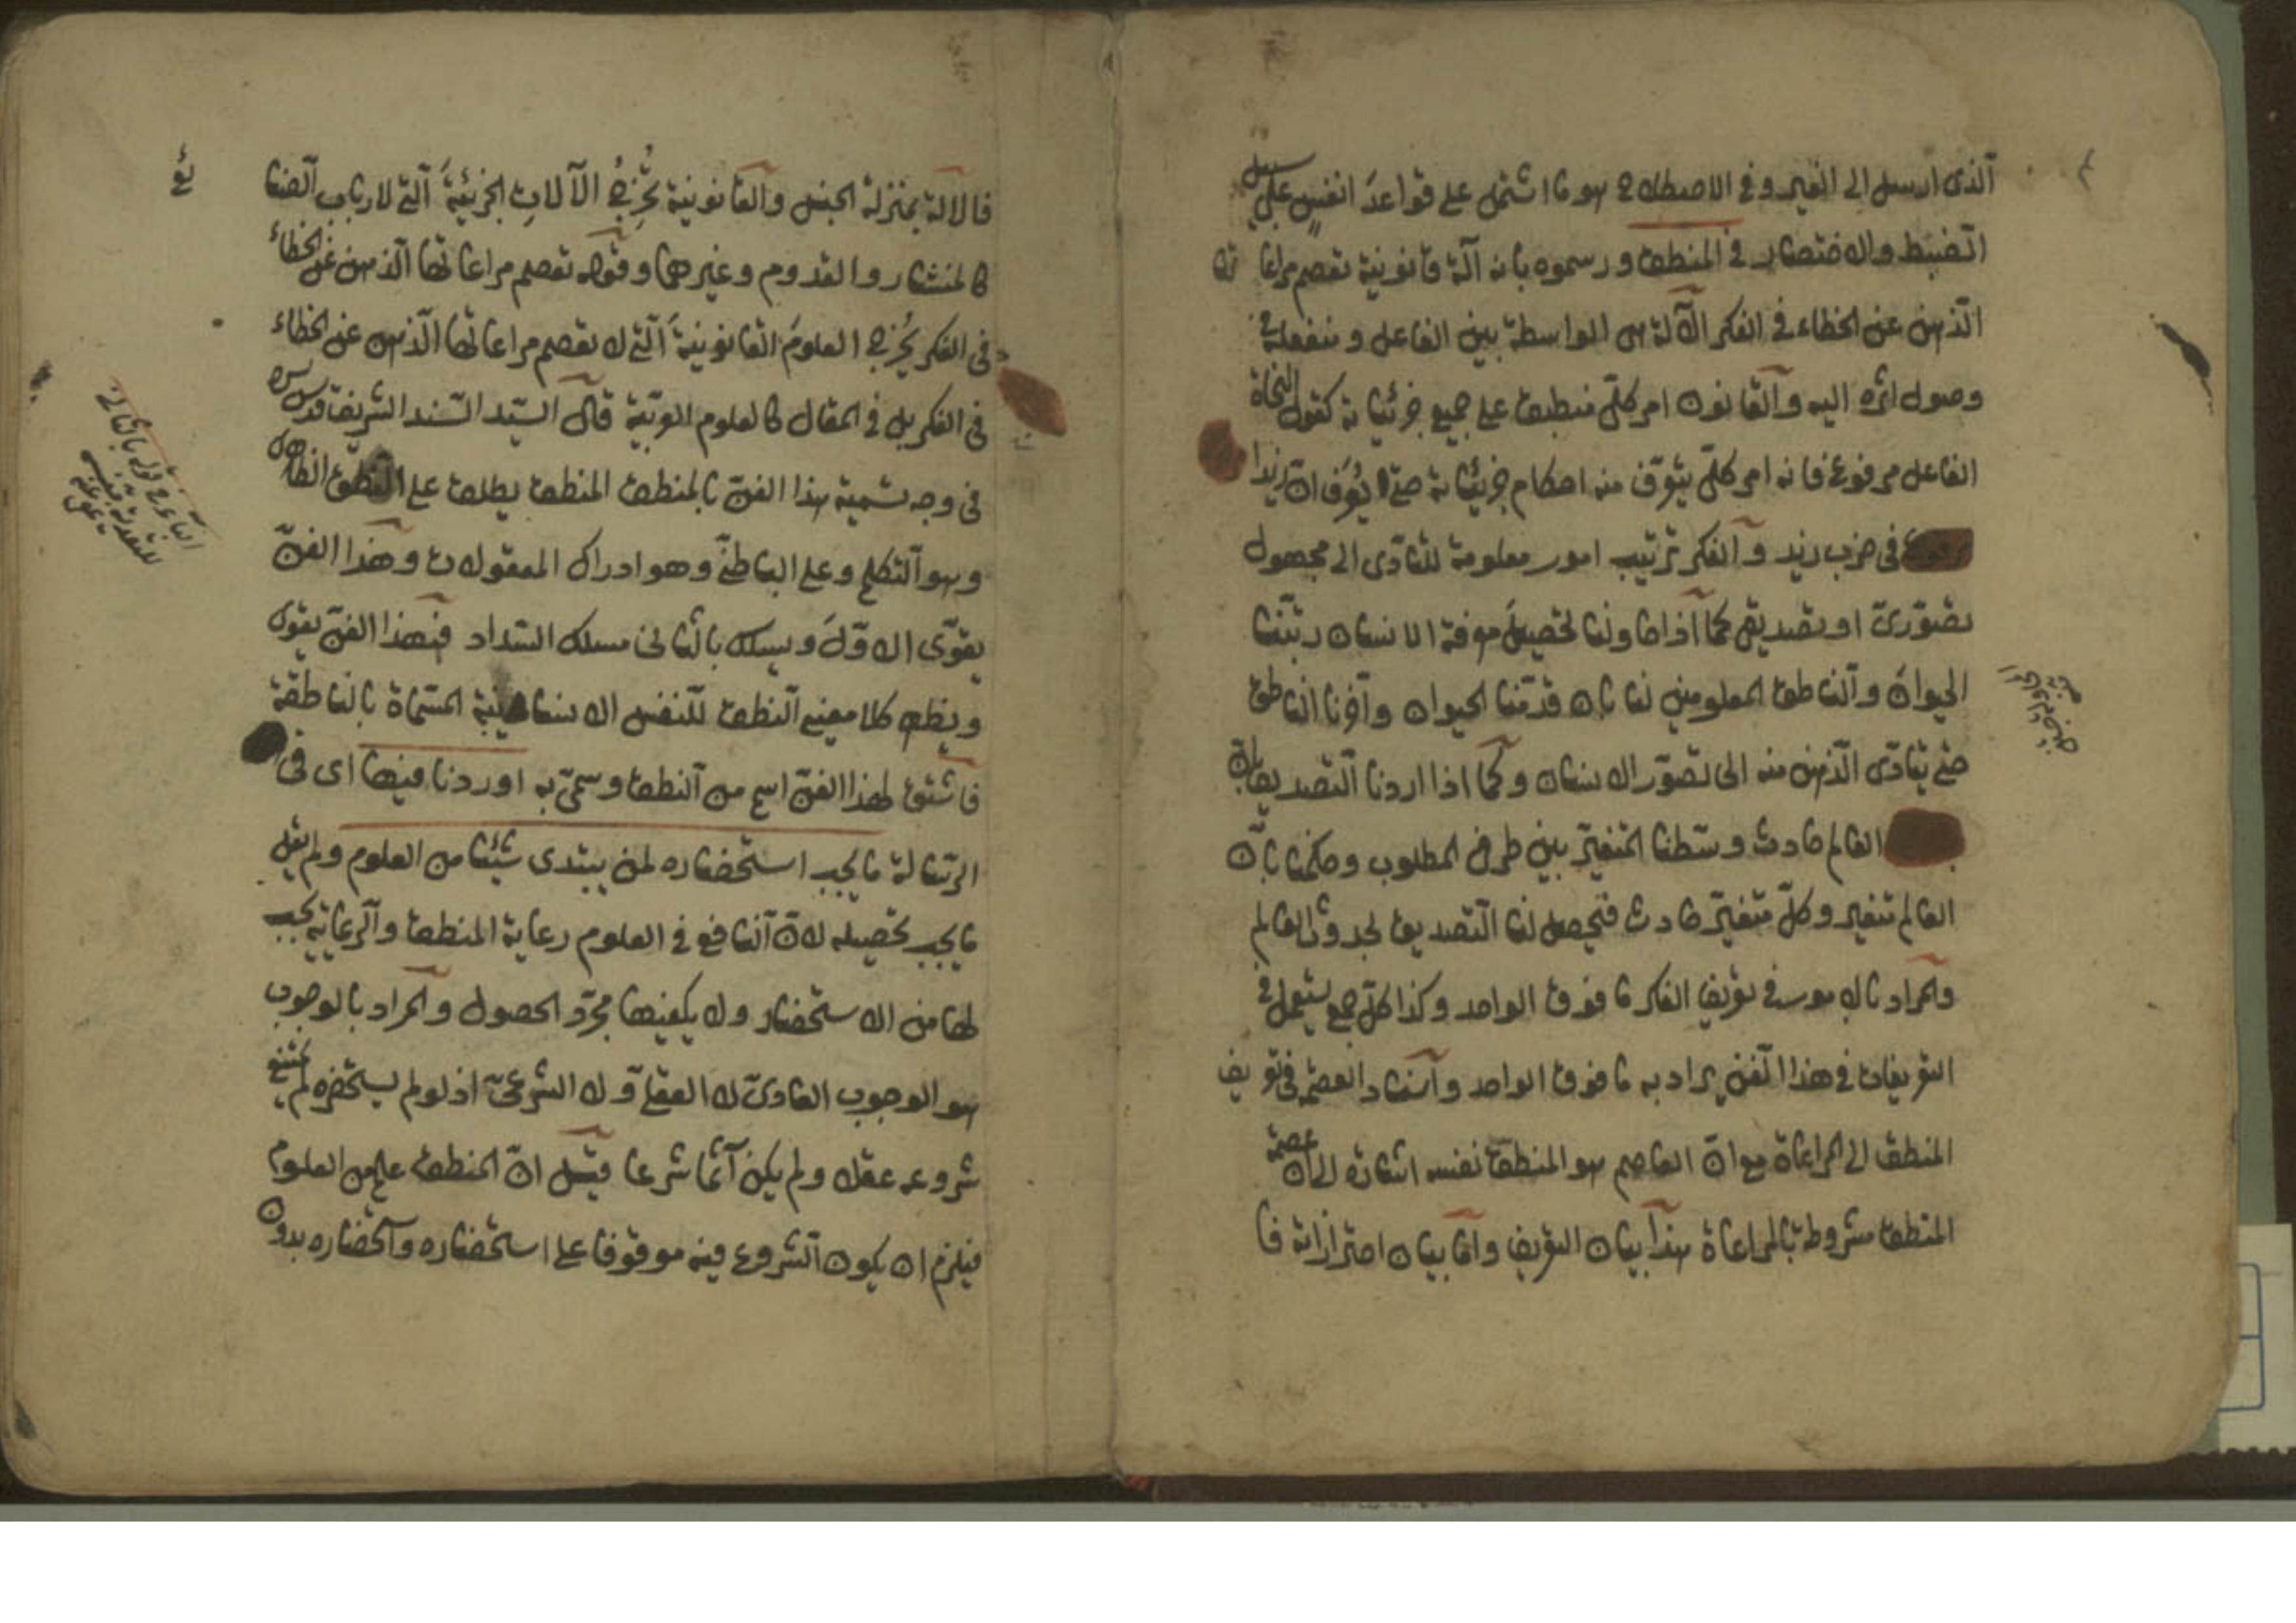 الذى ارسل الى الغير وفى الاصطلاح هو ما اشتمل على قواعد انفس على سبيل
الضبط والاختصار فى المنطق ورسموه بانه آلة قانونية تعصم مراعاتها
الذهن عن الخطاء فى الفكر الآلة هى الواسطة بين الفاعل ومنفعله فى
وصول اثره اليه والقانون امر كلّى منطبق على جميع جزئياته كقول النحاة
الفاعل مرفوع فانه امر كلّى يتعرّف منه احكام جزئياته حتى يعرف انّ زيدا
فى ضرب زيد والفكر ترتيب امور معلومة للتأدّى الى مجهول
تصوّرىّ او تصديقى كما اذا حاولنا تحصيل معرفة الانسان رتّبنا
الحيوان والناطق المعلومين لنا بان قدّمنا الحيوان وآخرنا الناطق
حتى يتأدّى الذهن منه الى تصوّر الانسان وكما اذا اردنا التصديق بانّ
العالم حادث وسّطنا المتغيّر بين طرفى المطلوب وحكمنا بانّ
العالم متغير وكلّ متغيّر حادث فيحصل لنا التصديق بحدوث العالم
والمراد بالامور فى تعريف الفكر ما فوق الواحد وكذا كلّ جمع يستعمل فى
التعريفات فى هذا الفن يراد به ما فوق الواحد واسناد العصمة فى تعريف
المنطق الى المراعاة مع انّ العاصم هو المنطق نفسه اشارة الى انّ عصمة
المنطق مشروطة بالمراعاة هذا بيان التعريف وامّا بيان احترازاته فا
فالآلة بمنزلة الجنس والقانونية يُخْرِجُ الآلاتِ الجزئيّةَ التى لارباب الصنا
كالمنشار والقدوم وغيرهما وقوله تعصم مراعاتها الذهن عن الخطاء
فى الفكر يُخرج العلومَ القانونيّةَ التى لا تعصم مراعاتها الذهن عن الخطاء
فى الفكر بل فى المقال كالعلوم العربيّة قال السيّد السّند الشريف قدس سره
فى وجه تسمية هذا الفنّ بالمنطق المنطق يطلق على النطق الظاهرى
وهو التكلم وعلى الباطنىّ وهو ادراك المعقولات وهذا الفنّ
يقوّى الاوّلَ ويسلك بالثانى مسلك السّداد فبهذا الفنّ يقوى
ويظهر كلا معنيى النطق للنفس الانسانية المسمّاة بالناطقة
فاشتق لهذا الفنّ اسم من النطق وسمّى به اوردنا فيها اى فى
الرّسالة ما يجب استحضاره لمن يبتدى شيئا من العلوم ولم يقل
ما يجب تحصيله لانّ النافع فى العلوم رعاية المنطق والرعاية يجب
لها من الاستحضار ولا يكفيها مجرّد الحصول والمراد بالوجوب
هو الوجوب العادىّ لا العقلىّ ولا الشرعىّ اذ لو لم يستحضره لم يمتنع
شروعه عقلا ولم يكن آثما شرعا قيل انّ المنطق علم من العلوم
فيلزم ان يكون الشروع فيه موقوفا على استحضاره واستحضاره بدون